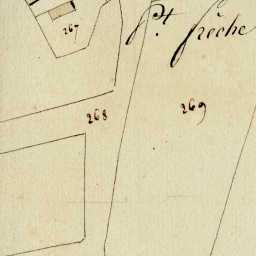 267
Pt. Frèche
268
269